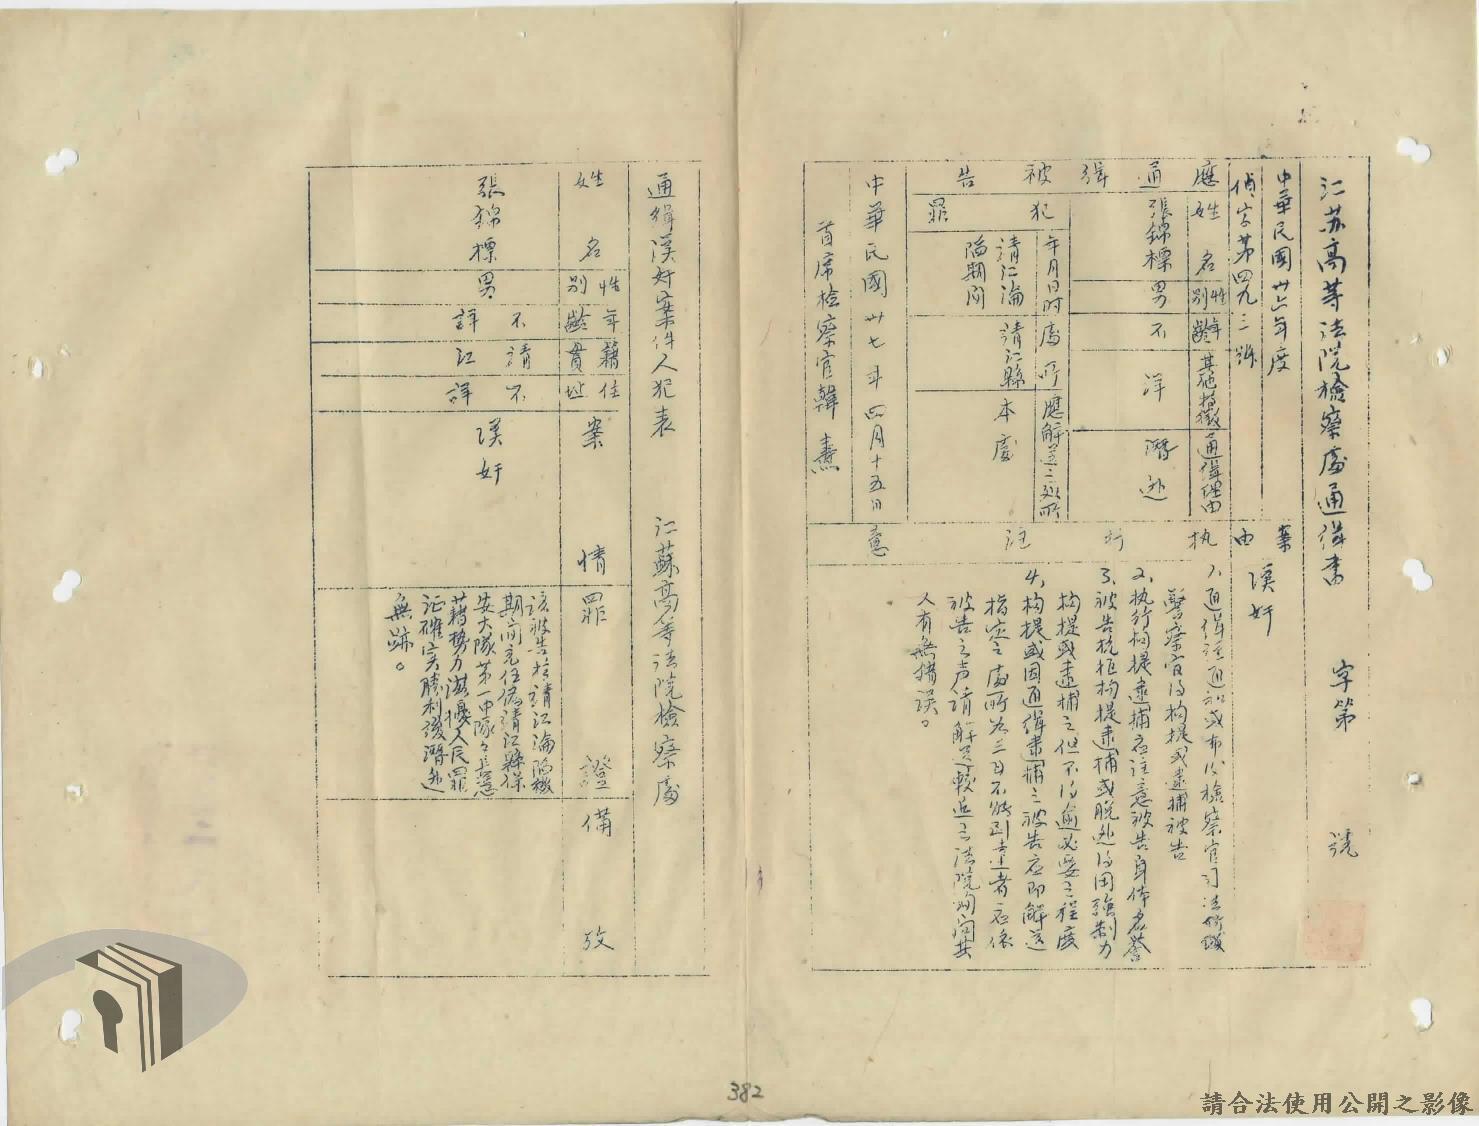 江苏高等法院檢察處通緝書 字第 號
中華民國卅六年度
偵字第四九三號
案由
漢奸
應通緝被告
姓名
性別
年齡
其他特徵
通緝理由
張錦標
男
不詳
潛逃
犯罪
年月日時
處所
應解送之處所
靖江淪陷期間
靖江縣
本處
执行注意
1、通緝經通知或布告後檢察官司法警察官得拘提或逮捕被告
2、执行拘提逮捕应注意被告身体名譽
3、被告抗拒拘提逮捕或脱逃得用強制力拘提或逮捕之但不得逾必要之程度
4、拘提或因通緝逮捕之被告应即解送指定之處所如三日不能到達者应依被告之声請解送較近之法院詢问其人有無錯误。
中華民國卅七年四月十五日
首席检察官韓燾
通緝漢奸案件人犯表 江蘇高等法院檢察處
姓名
性別
年齡
籍貫
住址
案情
罪證
備攷
張錦標
男
不詳
靖江
不詳
漢奸
該被告於靖江淪陷
期間充任偽靖江縣保
安大隊第一中隊々長憑
藉勢力滋擾人民罪
证確实勝利後潛逃
無跡。
382
請合法使用公開之影像